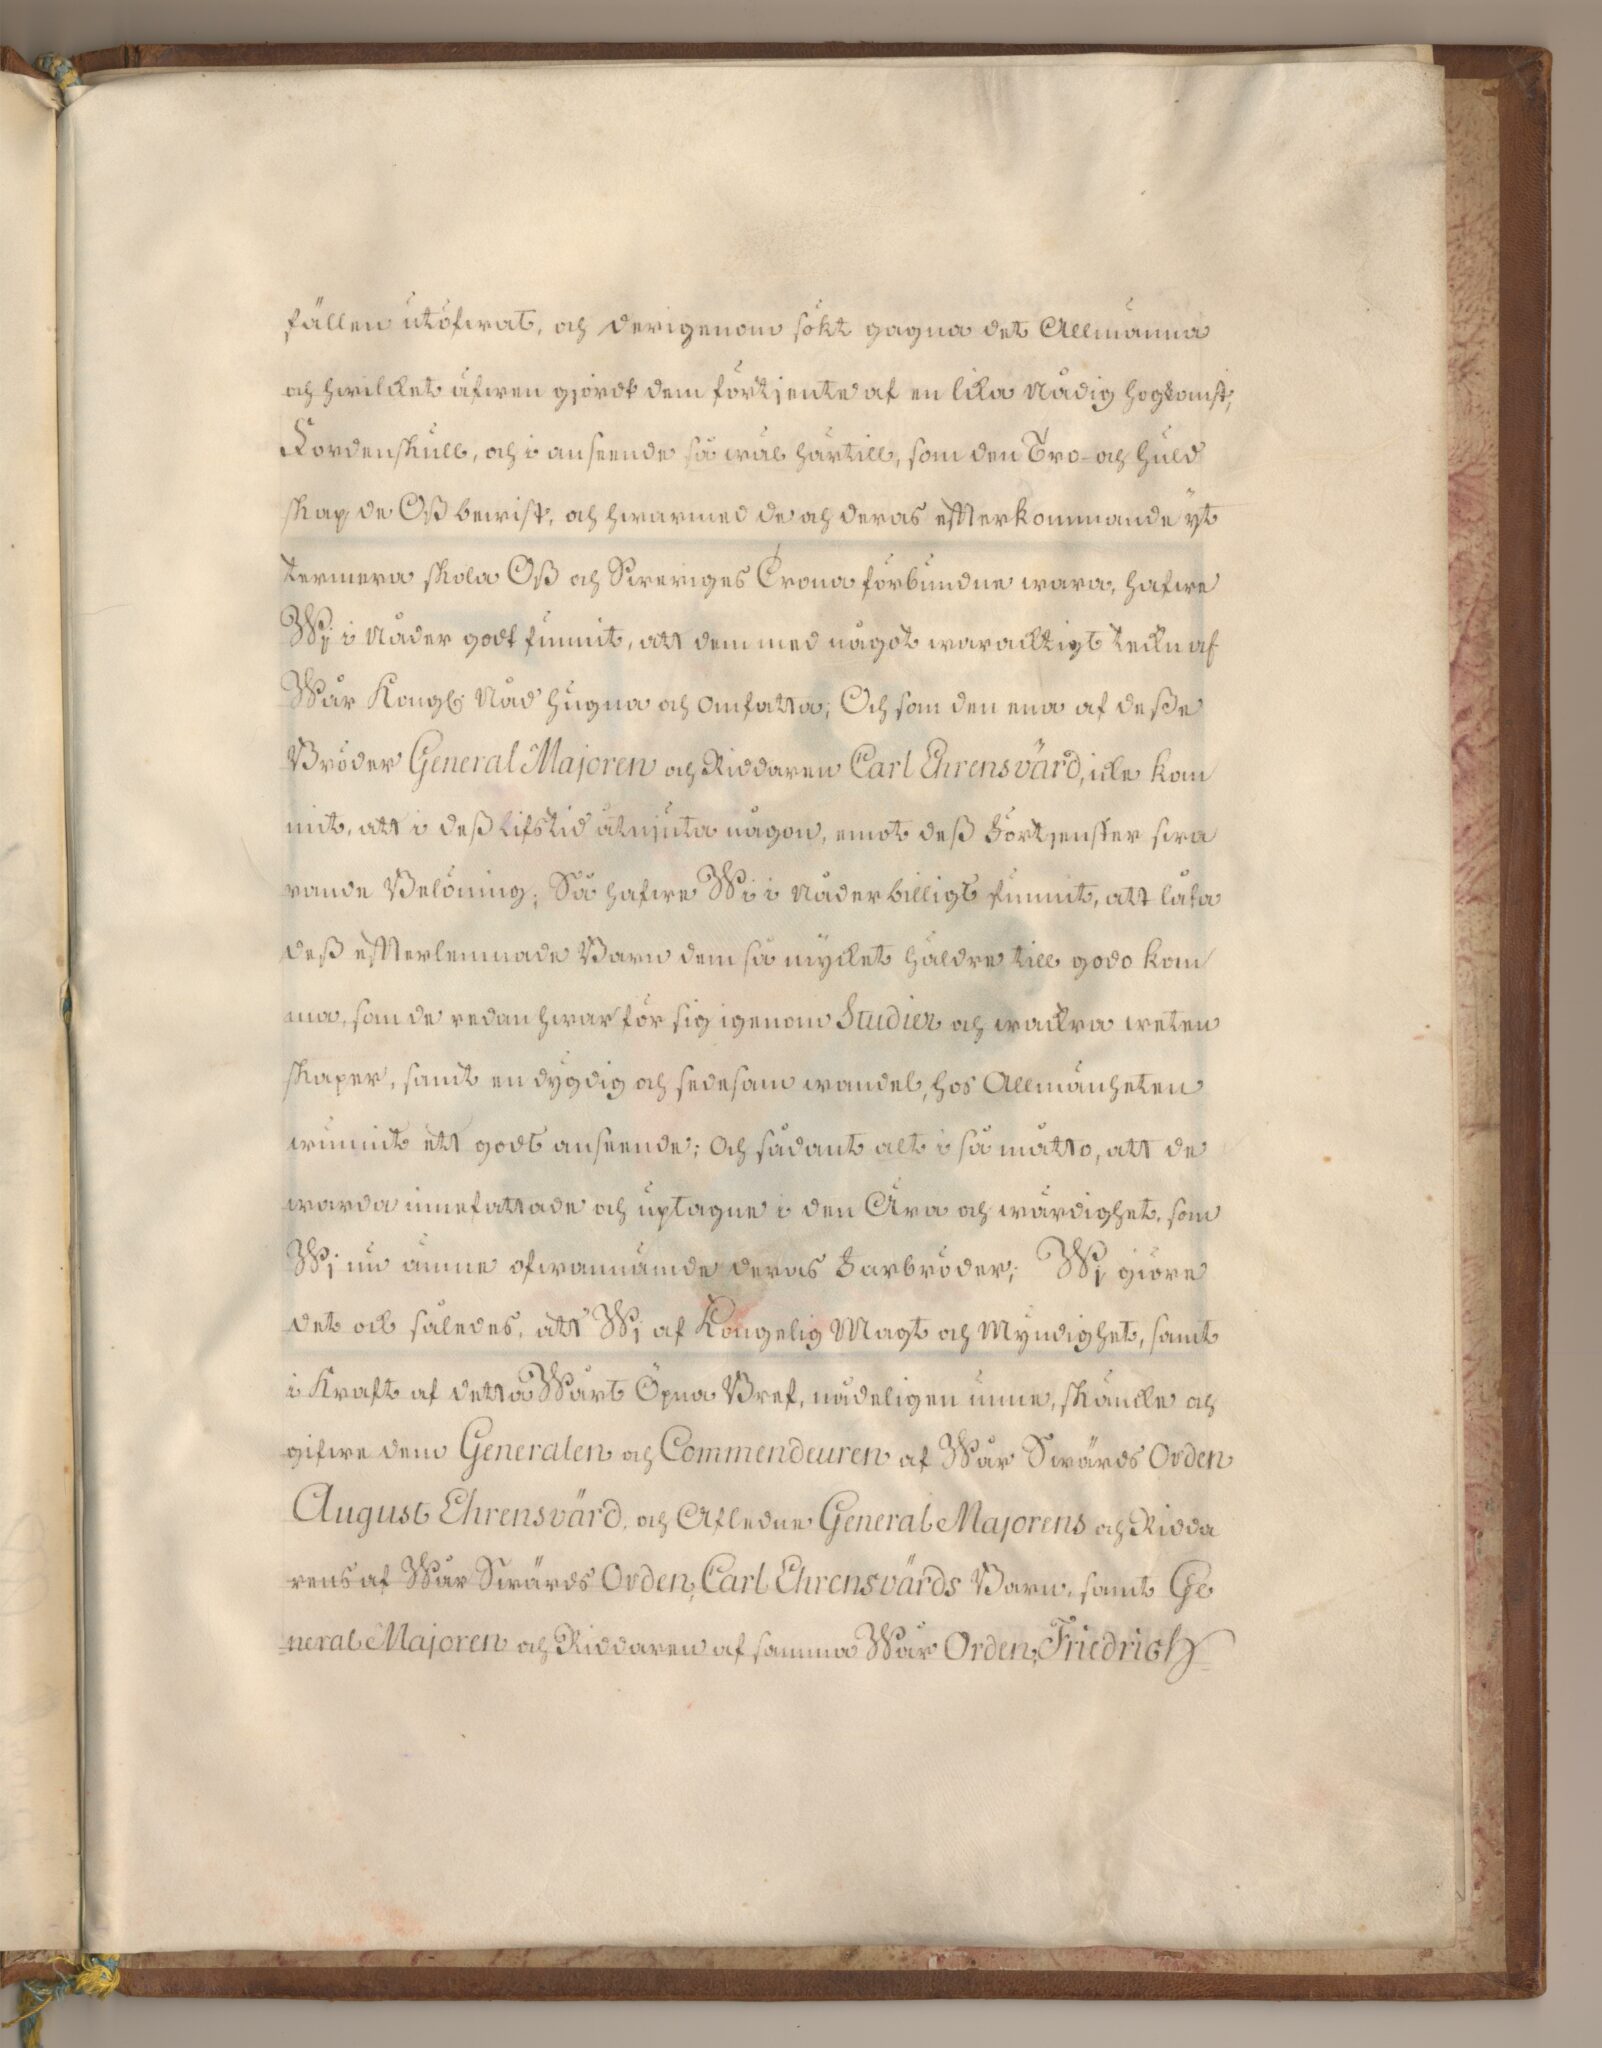 fällen utöfwat, och derigenom sökt gagna det Allmänna
och hwilcket äfwen gjordt dem förtjente af en lika Nådig hogkomst,
Fordenskull, och i anseende så wäl härtill, som den Tro- och Huld
skap de Oß bewist, och hwarmed de och deras effterkommande yt
termera skola Oß och Sweriges Crona förbundne wara, hafwe
Wj i Nåder godt funnit, att dem med något warachtigt teckn af
Wår Kongl: Nåd hugna och omfatta; Och som den ena af deße
Bröder General Majoren och Riddaren Carl Ehrensvärd, icke kom
mit, att i deß lifstid åtnjuta någon, emot deß Förtjenster swa
rande Belöning; Så hafwe Wi i Nåder billigt funnit, att låta
deß effterlemnade Barn dem så mycket häldre till godo kom
ma, som de redan hwar för sig igenom Studier och wackra weten
skaper, samt en dygdig och sedesam wandel, hos Allmänheten
wunnit ett godt anseende; Och sådant alt i så måtto, att de
warda innefattade och uptagne i den Ära och wärdighet, som
Wj nu ämne ofwannämde deras Farbröder; Wj giöre
det ock således, att Wj af Kongelig Magt och Myndighet, samt
i Kraft af detta Wårt Öpna Bref, nådeligen unne, skäncke och
gifwe dem Generalen och Commendeuren af Wår Swärds Orden
August Ehrensvärd, och Afledne General Majorens och Ridda
rens af Wår Swärds Orden, Carl Ehrensvärds Barn, samt Ge
neral Majoren och Riddaren af samma Wår Orden, Friedrich